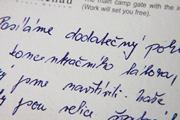 main camp gate with the in
(Work will set you free).
Posíláme dodatečný poh
koncentračního tábora,
jsme navštívili. Naše
jsou velice